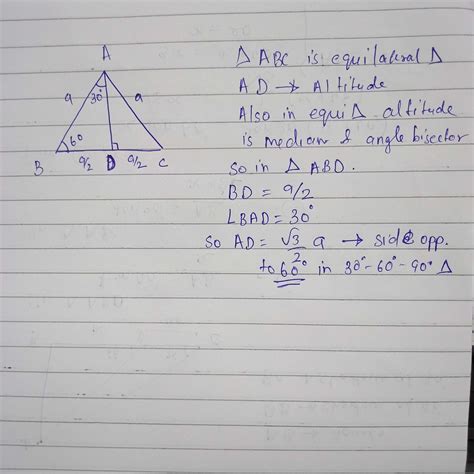 A
a
30°
a
60
B
a/2
D
a/2
C
Δ ABC is equilateral Δ
AD → Altitude
Also in equi Δ altitude
is median & angle bisector
so in Δ ABD.
BD = a/2
∠BAD = 30°
so AD = √3/2 a → side opp.
to 60° in 30°-60°-90° Δ